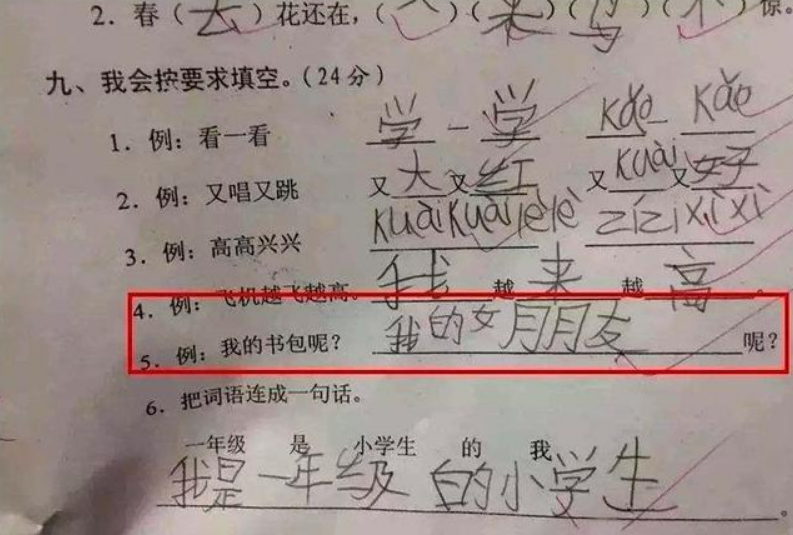 2. 春（去）花还在，（人）（来）（鸟）（不）惊。
九、我会按要求填空。（24分）
1. 例：看一看 学一学 kǎo kǎo
2. 例：又唱又跳 又大又红 又kuài又好
3. 例：高高兴兴 kuàikuàilèlè zǐzǐxìxì
4. 例：飞机越飞越高。 我越来越高。
5. 例：我的书包呢？ 我的女朋友呢？
6. 把词语连成一句话。
一年级 是 小学生 的 我
我是一年级的小学生。